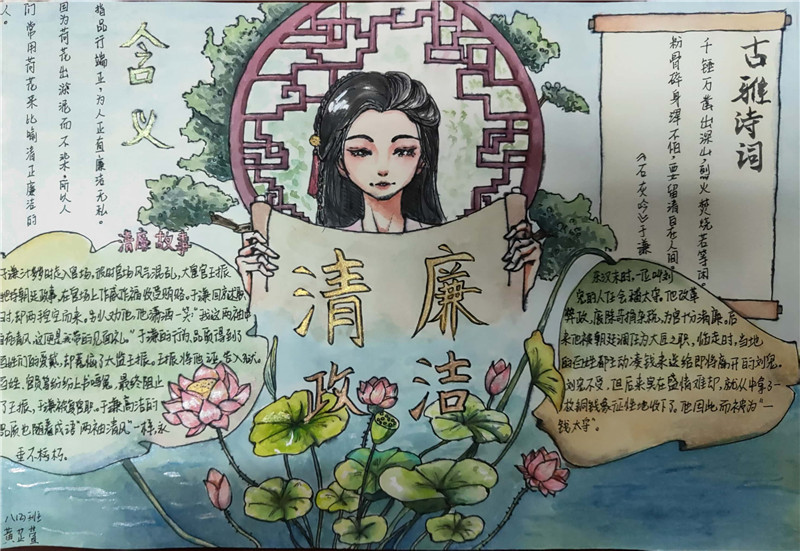 含义
指品行端正,为人正直廉洁无私。
因为荷花出淤泥而不染,所以人
们常用荷花来比喻清正廉洁的
人。
古雅诗词
千锤万凿出深山,烈火焚烧若等闲。
粉骨碎身浑不怕,要留清白在人间。
《石灰吟》于谦
廉洁
清政
清廉故事
入官场,那时官场风气混乱,大宦官王振
把持朝廷政事,在官场上作威作福收受贿赂。于谦回京述职
时,却两袖空而来。别人劝他,他潇洒一笑"我这两袖中
自有清风,这便是我带的见面礼。"于谦的行为,品质得到了
百姓们的爱戴,却惹恼了大监王振。王振将他诬告入狱。
百姓、官员纷纷上书喊冤。最终阻止
了王振。于谦被官复原职。于谦高洁的
品质也随着成语"两袖清风"一样,永
垂不朽。
东汉末时,一位叫刘
宠的人任会稽太守。他改革
弊政,废除苛捐杂税,为官十分清廉。后
来他被朝廷调任为大臣之职,临走时,当地
的百姓都主动凑钱来送给即将离开的刘宠。
刘宠不受,但后来实在盛情难却,就从中拿了一
枚铜钱象征性地收下了。他因此而被为"一
钱太守"。